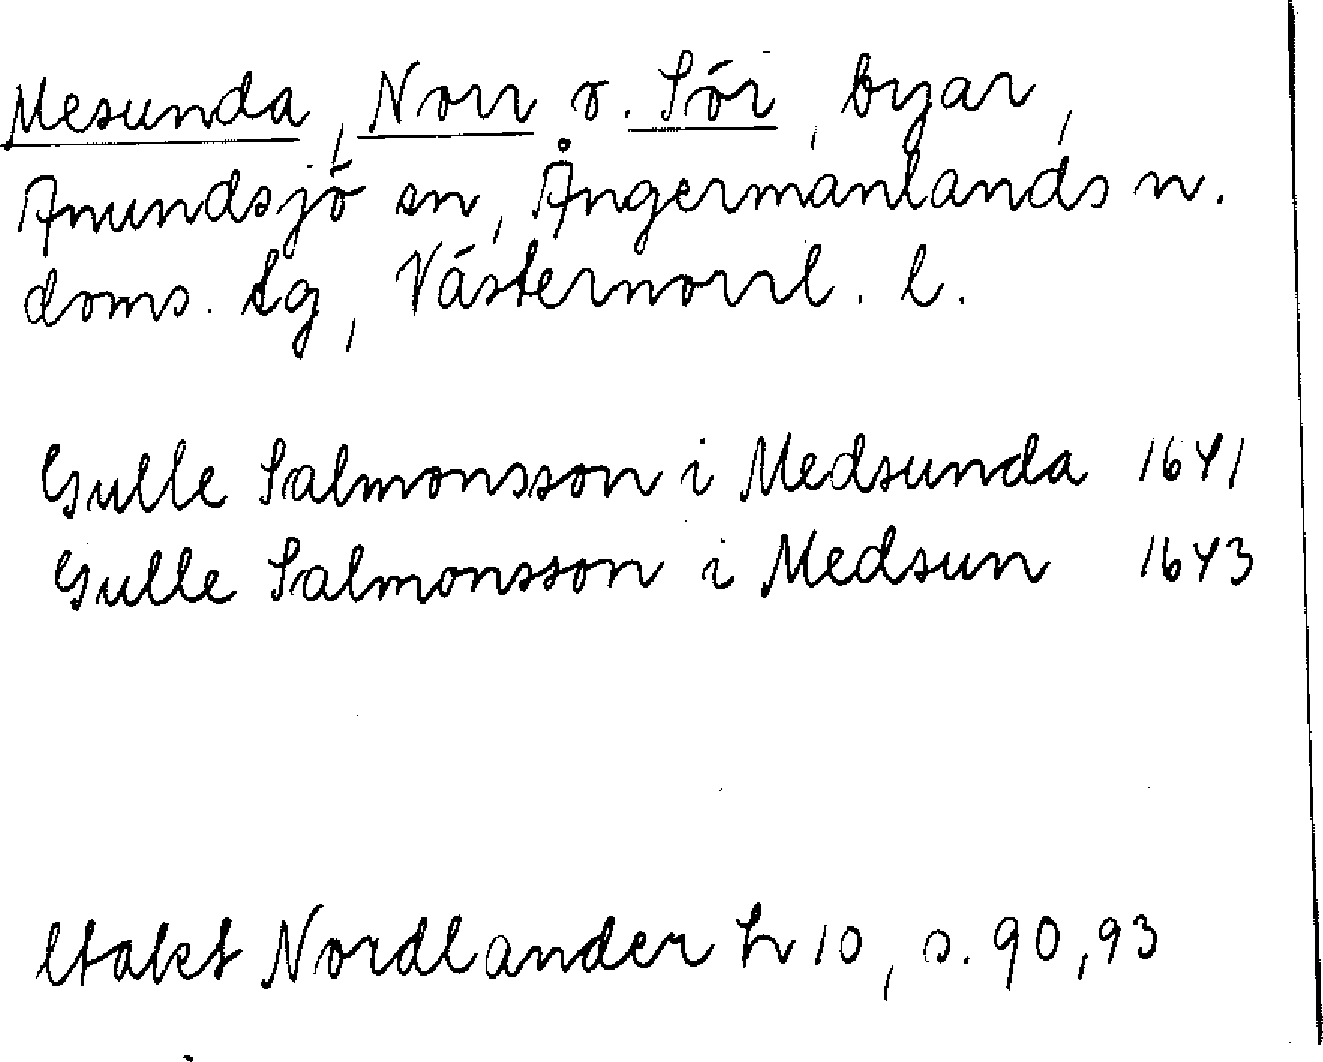 Mesunda, Norr o. Sör, byar,
Anundsjö sn, Ångermanlands n.
doms. tg, Västernorrl. l.
Gulle Salmonsson i Medsunda 1641
Gulle Salmonsson i Medsun 1643
Utakt Nordlander h 10, s. 90, 93